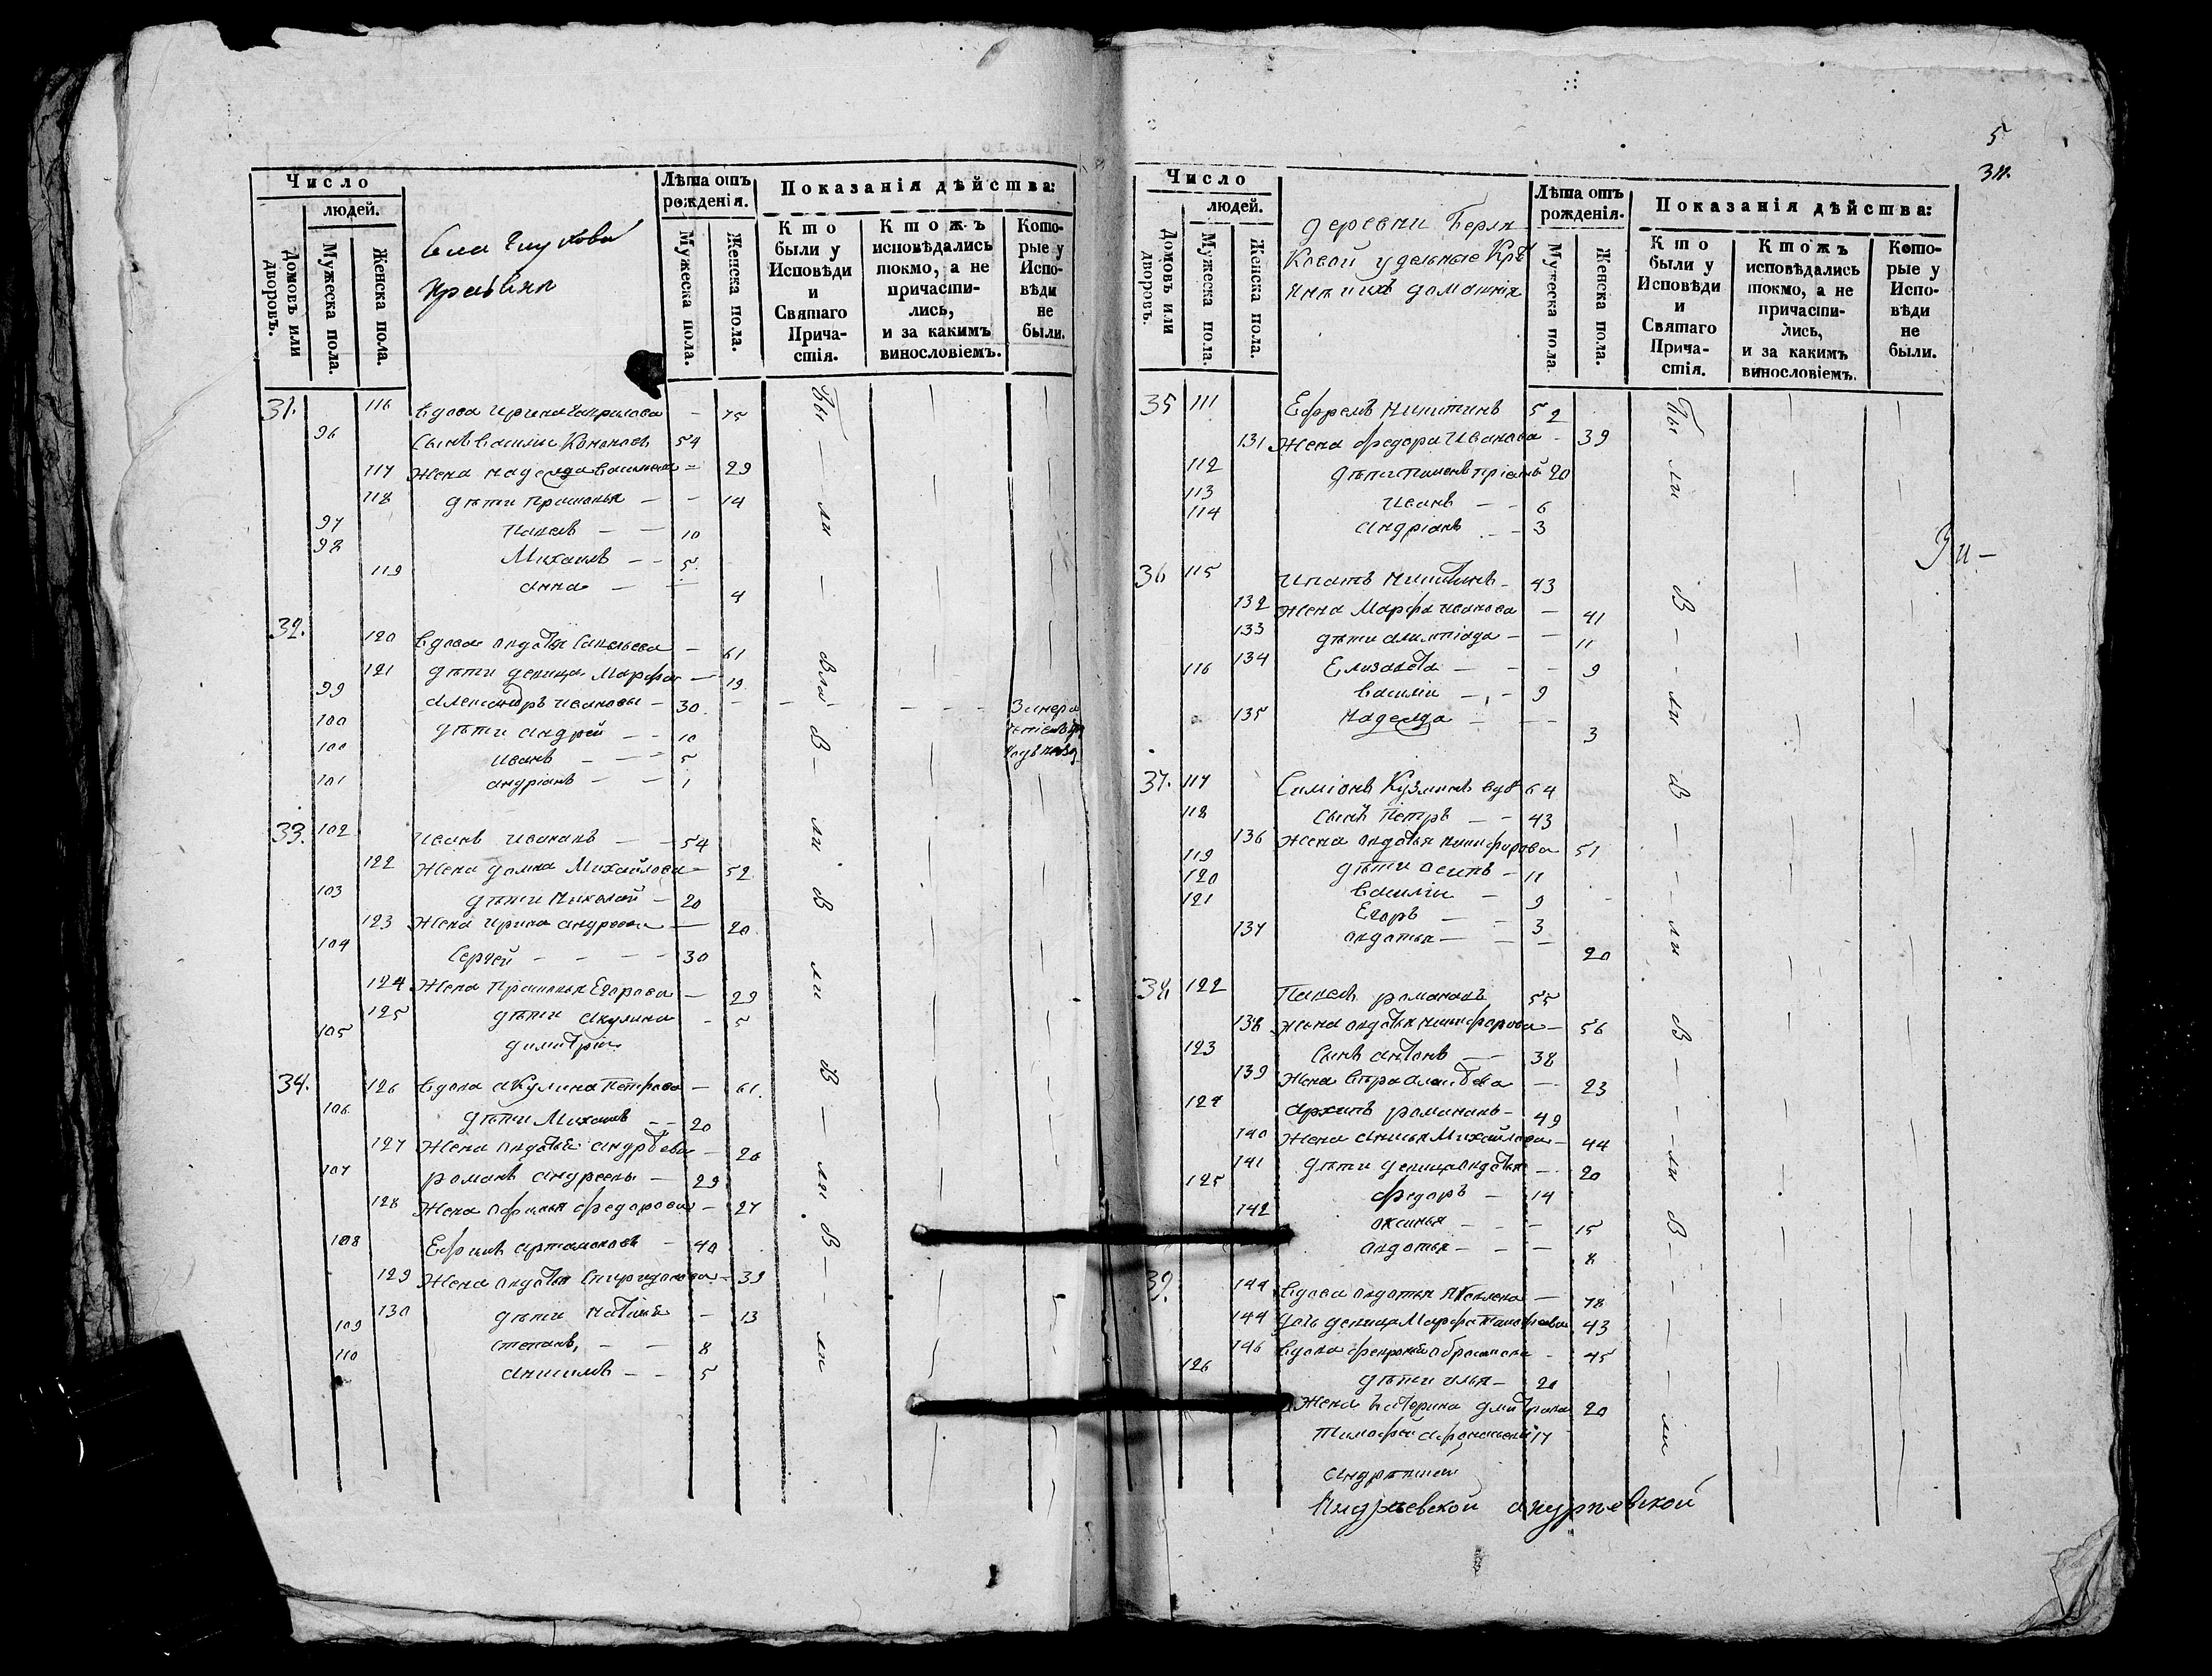 Число
людей.
Домовъ или дворовъ.
Мужеска пола.
Женска пола.
Села Глухова
Лѣта отъ рожденія.
Мужеска пола.
Женска пола.
Показанія дѣйства:
Кто были у Исповѣди и Святаго Причастія.
Ктожъ исповѣдались токмо, а не причастились, и за какимъ винословіемъ.
Которые у Исповѣди не были.
31. 116 вдова Ирина Гаврилова — 75
96 Сынъ Василіи 54
117 Жена надежда — 29
118 дѣти Прасковья — — 14
97 Павелъ — — 10
98 Михаилъ — — 5
119 анна — — 4
Бы — ли —
32. 120 вдова авдотья — 61
121 дѣти девица Марфа — 19
99 александръ ивановъ — 30
100 дѣти андрей — — 10
100 иванъ — — — 5
101 андріанъ — — 1
33. 102 иванъ ивановъ — — 54
122 Жена домна Михайлова — 52
103 дѣти николай — 20
123 Жена ирина андреева — 20
104 Сергей — — — — 30
124 Жена Прасковья Егорова — 29
125 дѣти акулина — 5
105 димитріи
34. 126 вдова акулина Петрова — 61.
106 дѣти Михаилъ — — 20
127 Жена авдотья андреева — 26
107 романъ андреевъ — 29
128 Жена афимья федорова — 27
108 Ефимъ артамоновъ — 40
129 Жена авдотья спиридонова — 39
130 дѣти — 13
109 степанъ, — — 8
110 анисимъ — — 5
5
Число
людей.
Домовъ или дворовъ.
Мужеска пола.
Женска пола.
деревни Беря
ковой удельные Кре
Лѣта отъ рожденія.
Мужеска пола.
Женска пола.
Показанія дѣйства:
Кто были у Исповѣди и Святаго Причастія.
Ктожъ исповѣдались токмо, а не причастились, и за какимъ винословіемъ.
Которые у Исповѣди не были.
35 111 Ефремъ никитинъ 52
131 Жена федора Иванова — 39
112 дѣти 20
113 иванъ — — 6
114 андріанъ — — 3
Бы ли
36 115 ипатъ никитинъ — 43
132 Жена Марфа иванова — 41
133 дѣти олимпіада — — 11
116 134 Елизавета — — — 9
василіи — — 9
135 надежда — — — 3
37. 117 Симіонъ Кузминъ вдв 64
118 сынъ Петръ — — 43
136 Жена авдотья никифорова 51
119 дѣти осипъ — 11
120 василіи — 9
121 Егоръ — — 3
137 авдотья — — — 20
38. 122 Павелъ романовъ 55
138 Жена авдотья никифорова — 56
123 Сынъ антонъ — — 38
139 Жена — 23
124 архипъ романовъ — 49
140 Жена Михайлова — 44
141 дѣти девица авдотья — 20
125 федоръ — 14
142 аксинья — — — 15
авдотья — — — 8
39. 144 вдова авдотья яковлева — 78
144 дочь девица Марфа 43
146 вдова — 45
126 дѣти илья — 20
Жена катерина 20
тимофей 17